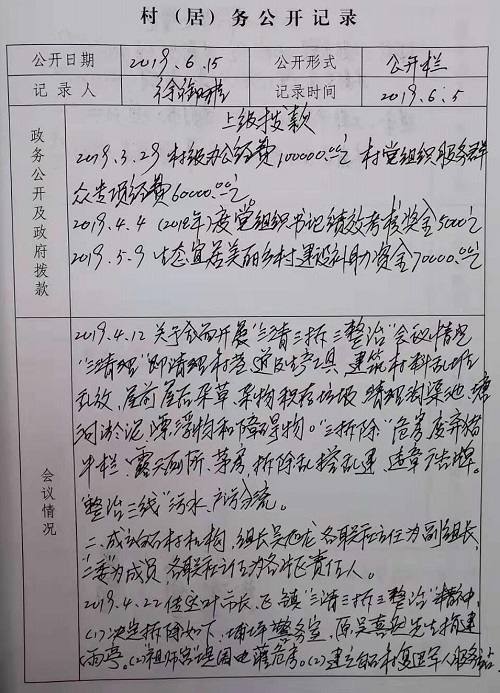 村（居）务公开记录
公开日期 2019.6.15 公开形式 公开栏
记录人 徐 记录时间 2019.6.5
政务公开及政府拨款
上级拨款
2019.3.29 村级办公经费100000.00元 村党组织服务群
众专项经费60000.00元
2019.4.4 (2018年)度党组织书记绩效考核奖金5000元
2019.5.9 生态宜居美丽乡村建设补助资金70000.00元
会议情况
2019.4.12 关于全面开展"三清三拆三整治"会议情况
"三清理"即清理村巷道生产工具 建筑材料乱堆
乱放,屋前屋后杂草、杂物积存垃圾 清理沟渠池塘
河淤泥,漂浮物和障碍物。"三拆除"危房废弃猪
牛栏、露天厕所、茅房,拆除乱搭乱建、违章广告牌。
"整治三线"污水、分流。
二、成立村机构,组长吴 各联社主任为副组长,
"两委"为成员,各联社主任为各片区责任人。
2019.4.22 传达叶市长、区镇"三清三拆三整治"精神
(1)决定拆除如下,埔坪警务室,原吴真 先生捐建
雨亭。(2)祖师宫 围 危房。(2)建立 村复退军人服务站